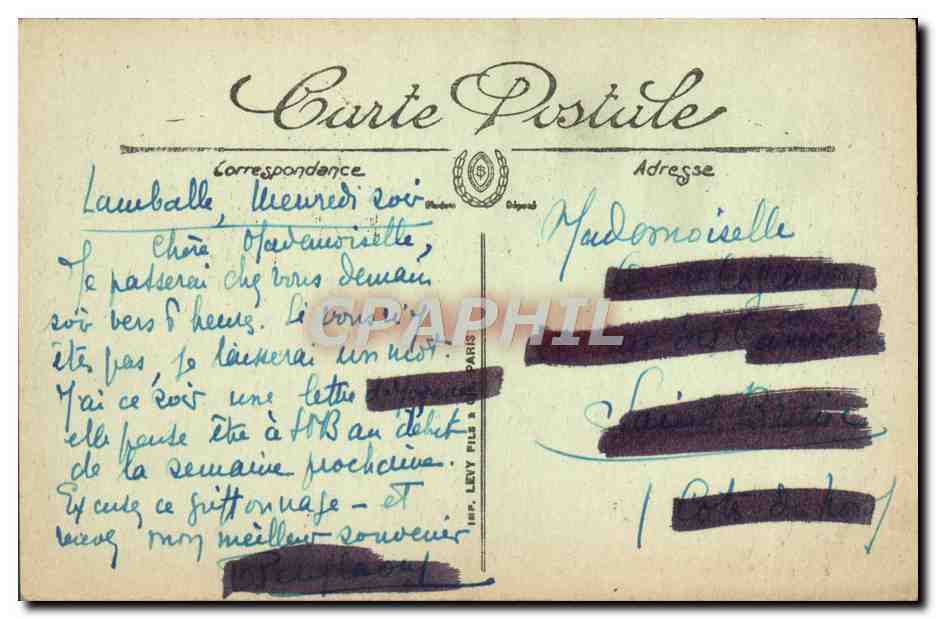 Carte Postale
Correspondance
Adresse
Modèle Déposé
Lamballe, Mercredi soir
Chère Mademoiselle,
Je passerai chez vous demain
soir vers 6 heures. Si vous n'y
êtes pas, je laisserai un mot.
J'ai ce soir une lettre
elle pense être à StB au début
de la semaine prochaine.
Excusez ce griffonnage - et
recevez mon meilleur souvenir
IMP. LEVY FILS & CIE PARIS
CPAPHIL
Mademoiselle
Saint Brieuc
(Côtes du Nord)